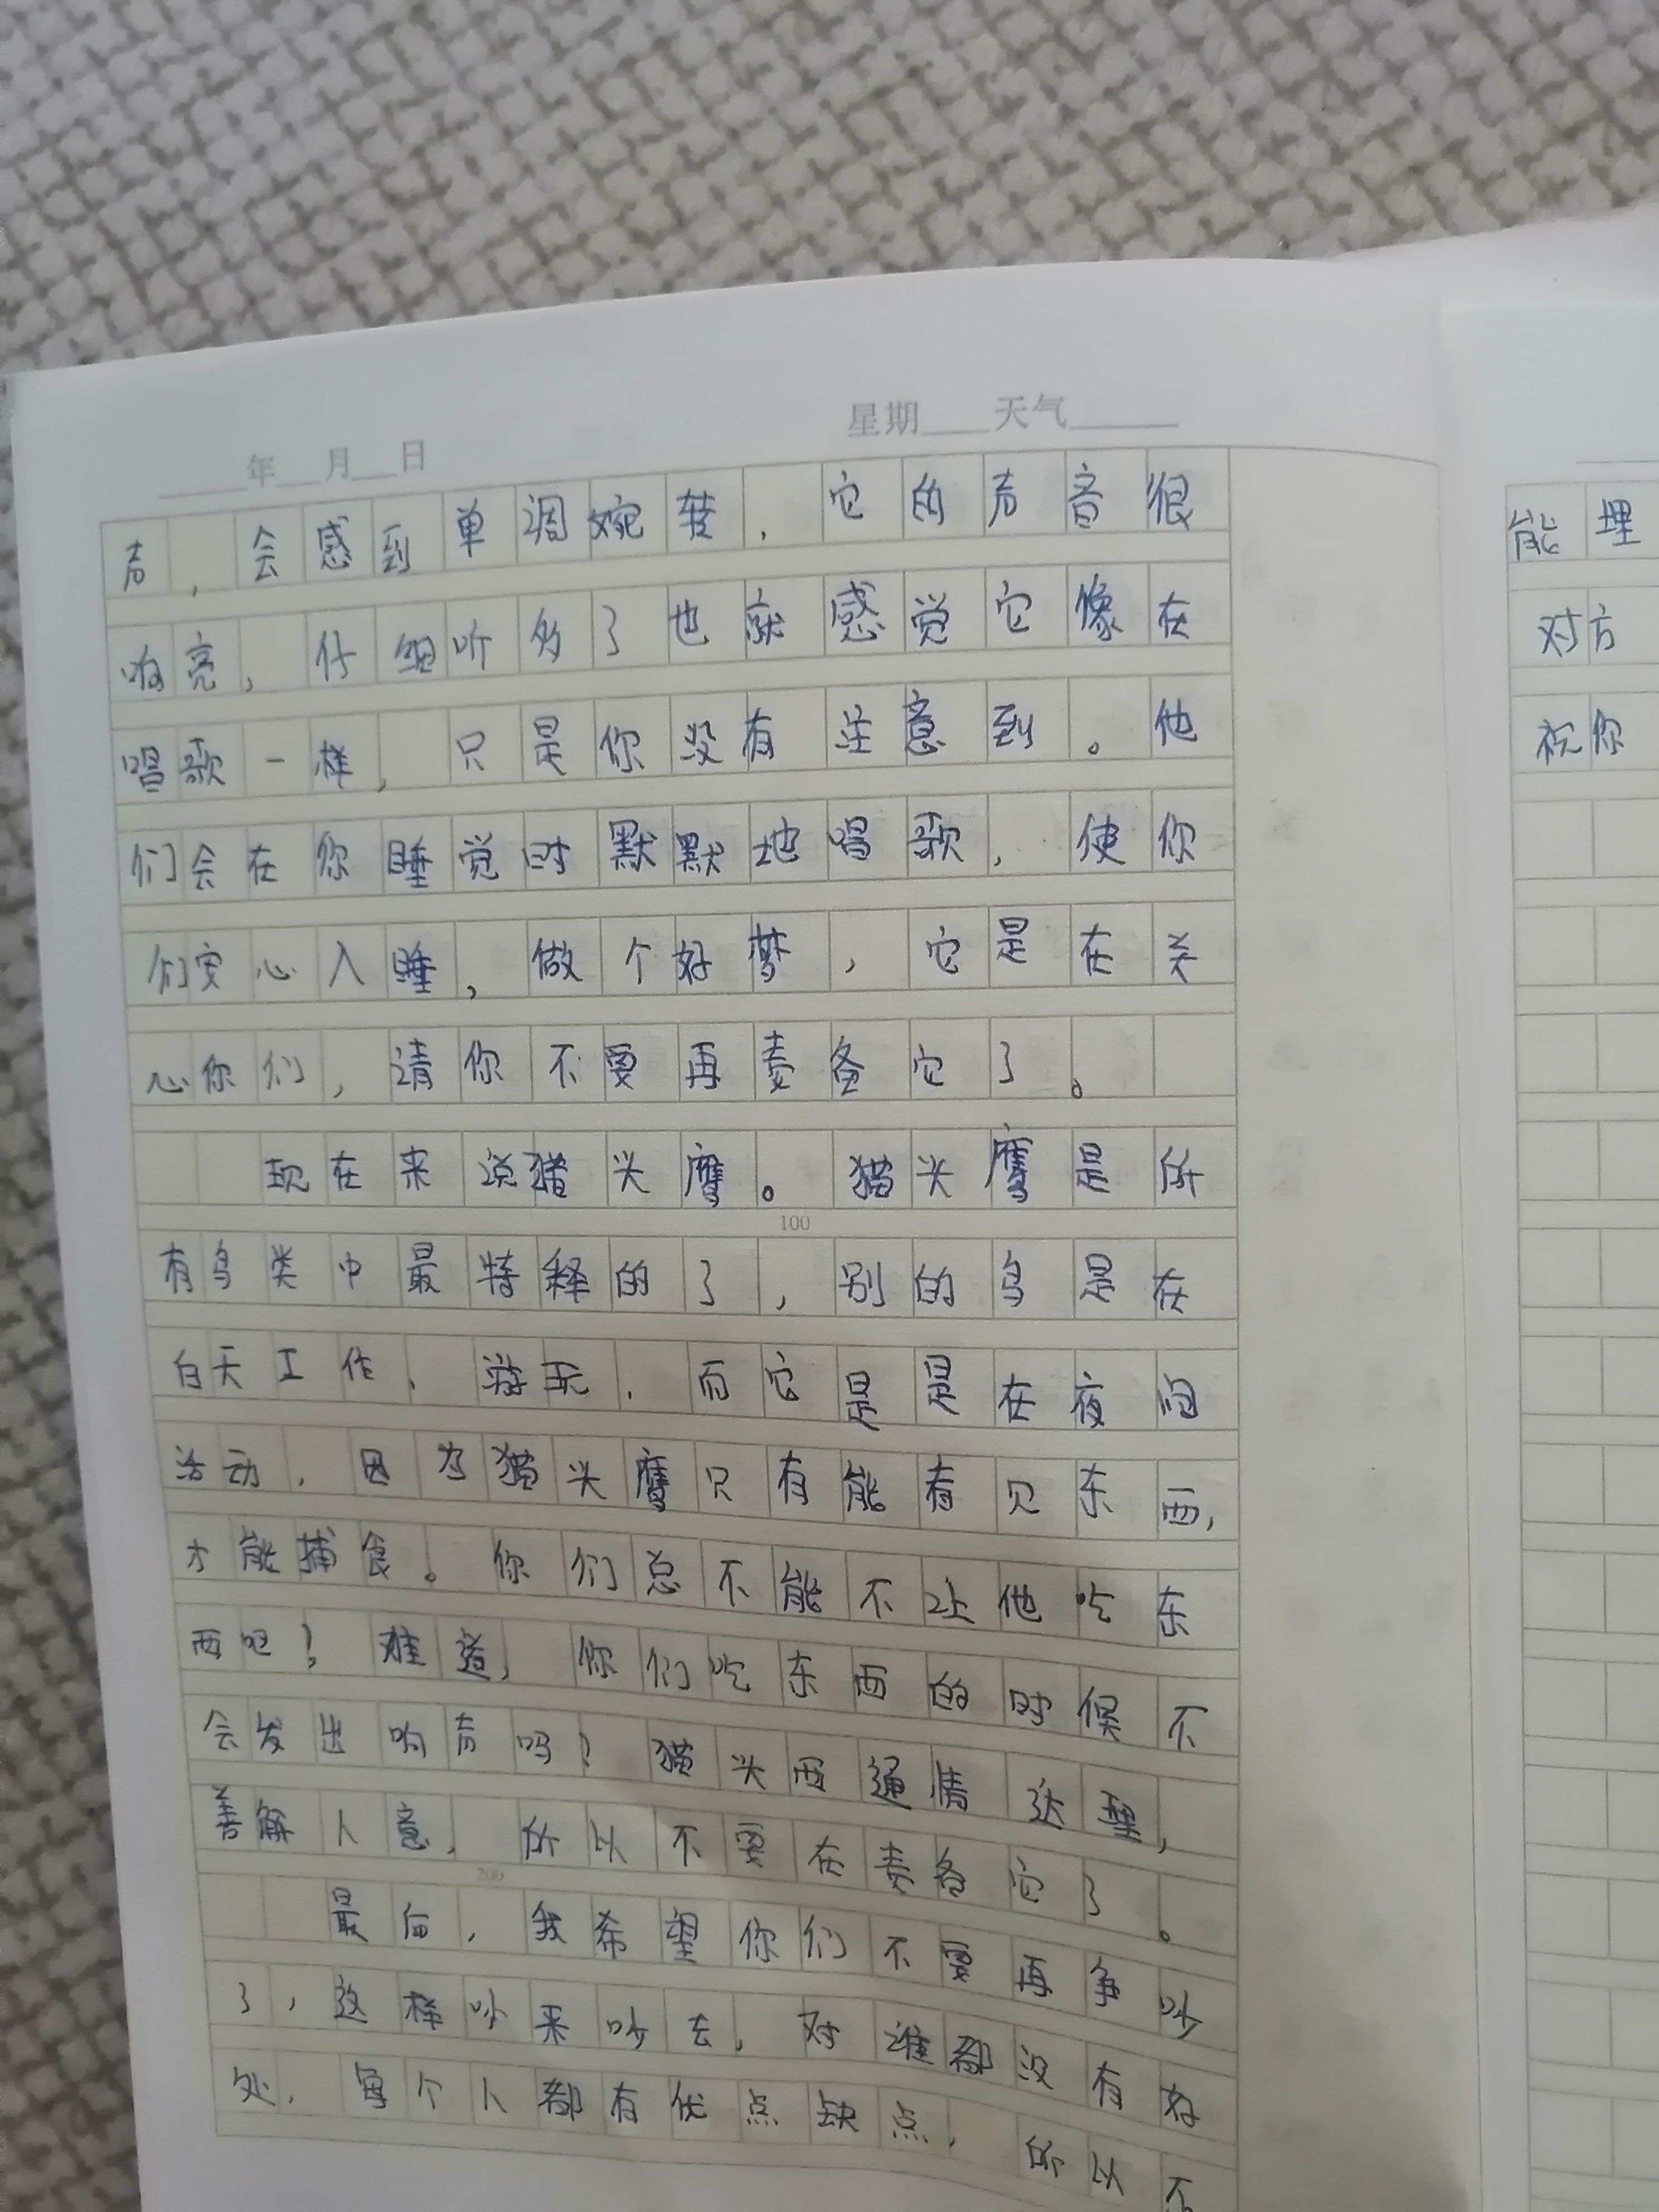 年 月 日 星期 天气
声，会感到单调婉转，它的声音很
响亮，仔细听多了也就感觉它像在
唱歌一样，只是你没有注意到。他
们会在你睡觉时默默地唱歌，使你
们安心入睡，做个好梦，它是在关
心你们，请你不要再责备它了。
现在来说猫头鹰。猫头鹰是所
100
有鸟类中最特释的了，别的鸟是在
白天工作，游玩，而它是是在夜间
活动，因为猫头鹰只有能看见东西，
才能捕食。你们总不能不让他吃东
西吧！难道，你们吃东西的时候不
会发出响声吗？猫头西通情达理，
善解人意，所以不要在责备它了。
200
最后，我希望你们不要再争吵
了，这样吵来吵去，对谁都没有好
处，每个人都有优点缺点，所以不
能埋
对方
祝你